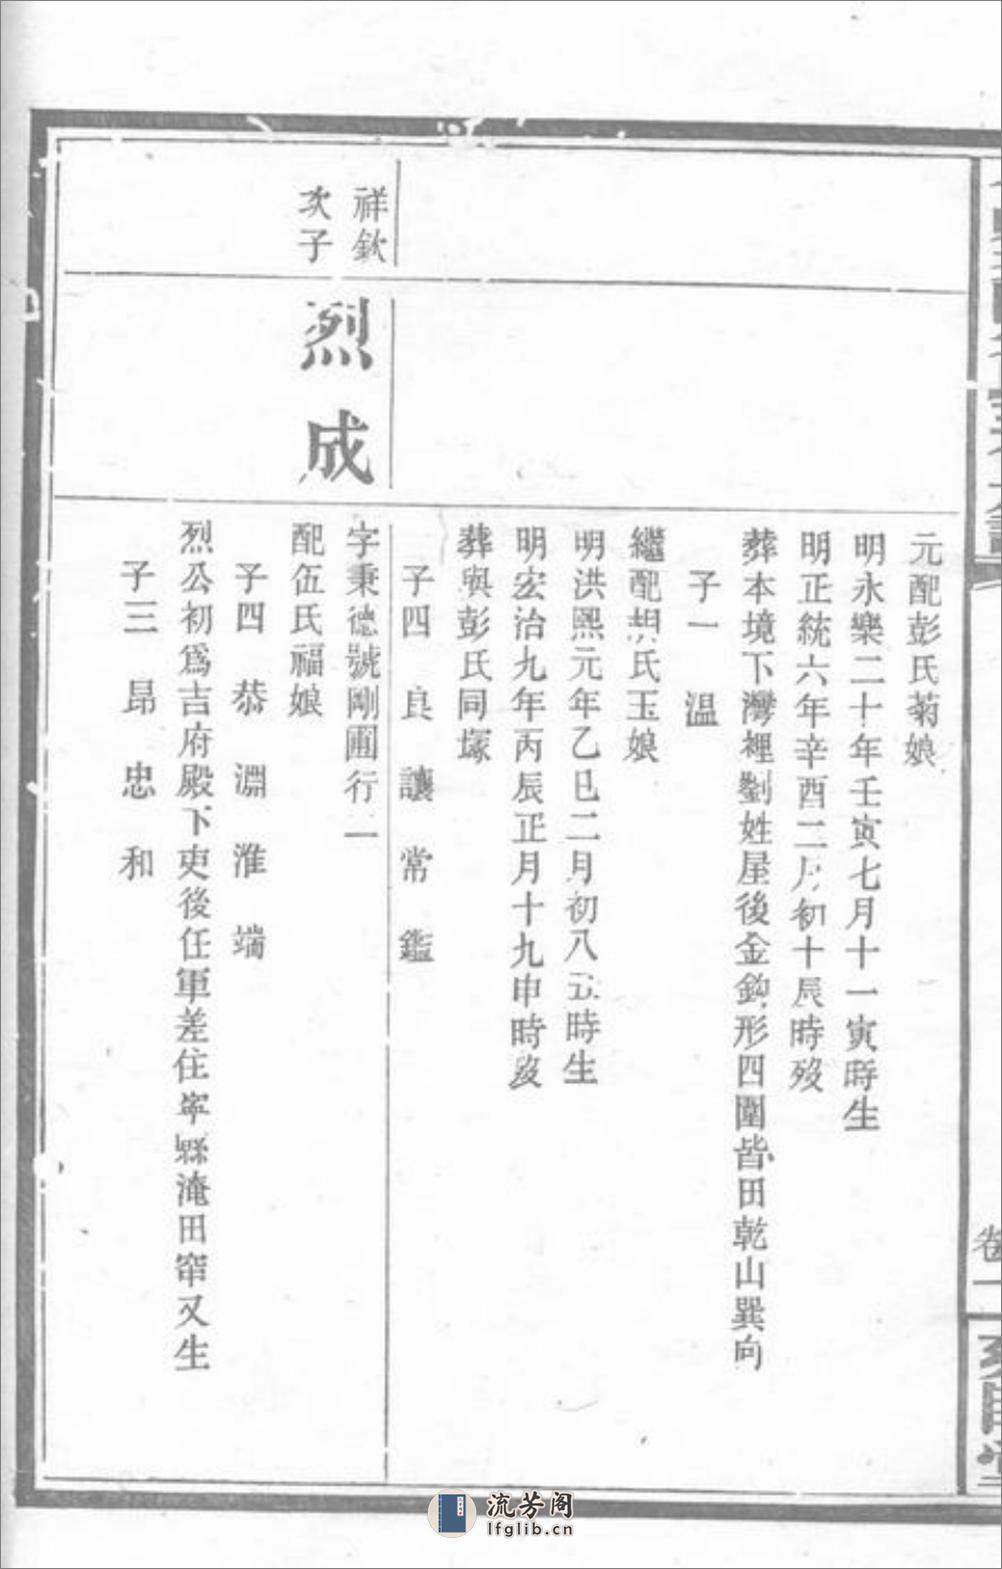 元配彭氏菊娘
明永樂二十年壬寅七月十一寅時生
明正統六年辛酉二月初十辰時歿
葬本境下灣裡劉姓屋後金鈎形四圍皆田乾山巽向
子一 溫
繼配 氏玉娘
明洪熙元年乙巳二月初八 時生
明宏治九年丙辰正月十九申時歿
葬與彭氏同塚
子四 良 讓 常 鑑
祥欽
次子
烈成
字秉德號剛圃行一
配伍氏福娘
子四 恭 淵 淮 端
烈公初爲吉府殿下吏後任軍差住寧縣淹田窂又生
子三 昂 忠 和
卷一
流芳阁
lfglib.cn